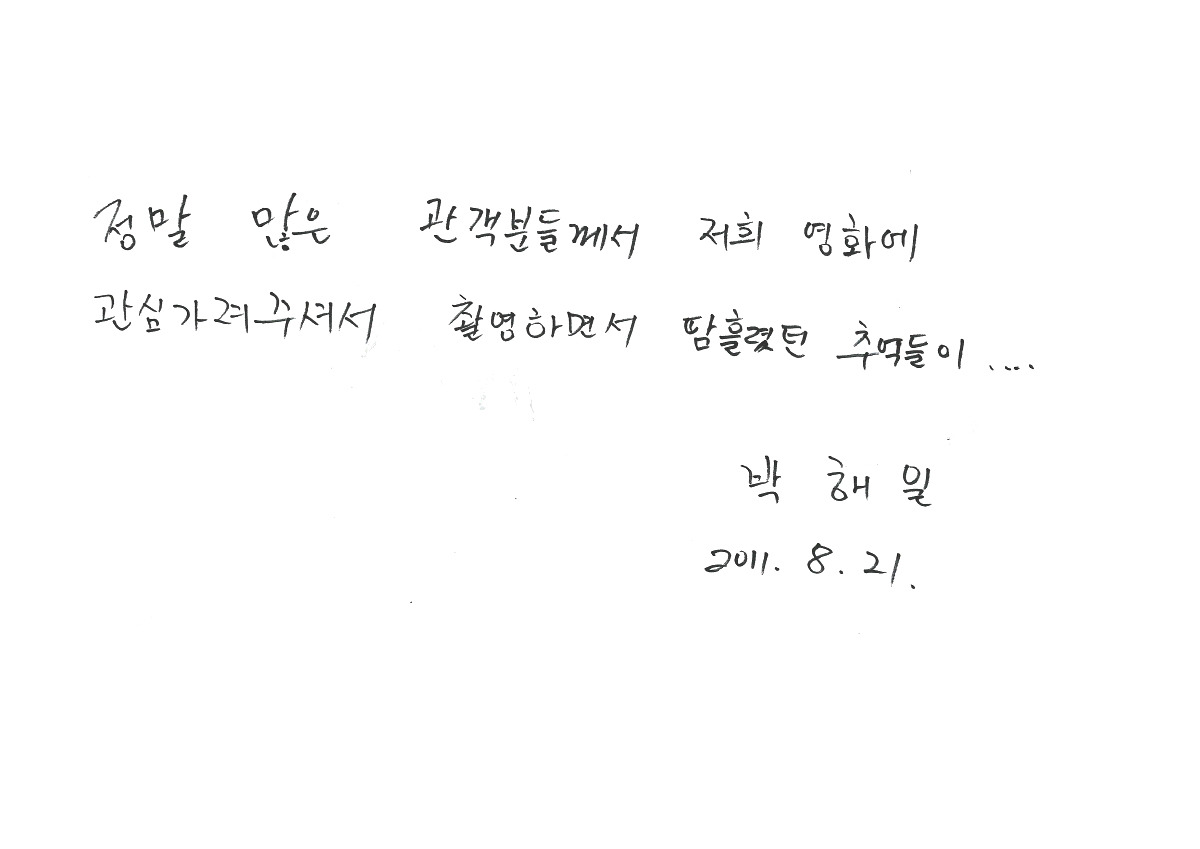 정말 많은 관객분들께서 저희 영화에
관심가려주셔서 촬영하면서 땀흘렸던 추억들이 ....
박 해 일
2011. 8. 21.